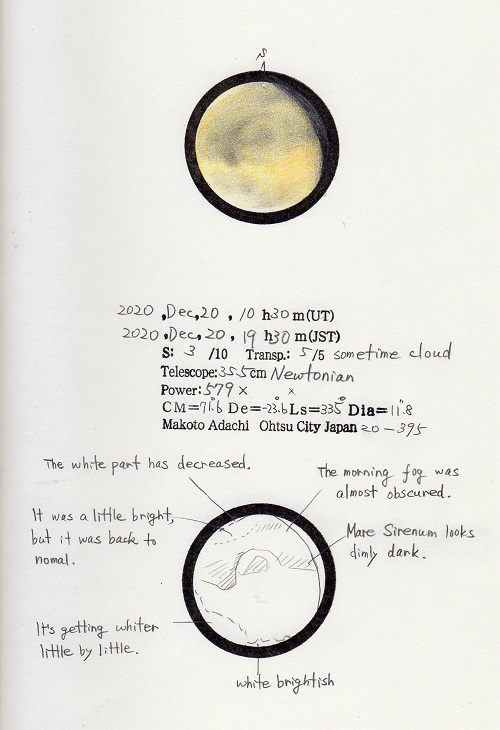 S
2020 ,Dec,20 , 10 h30 m(UT)
2020 ,Dec, 20 , 19 h30 m(JST)
S: 3 /10 Transp.: 5/5 sometime cloud
Telescope:355cm Newtonian
Power:579× ×
CM=71°.6 De=-23°.6 Ls=335° Dia=11".8
Makoto Adachi Ohtsu City Japan 20-395
The white part has decreased.
The morning fog was
almost obscured.
It was a little bright,
but it was back to
nomal.
Mare Sirenum looks
dimly dark.
It's getting whiter
little by little.
white brightish